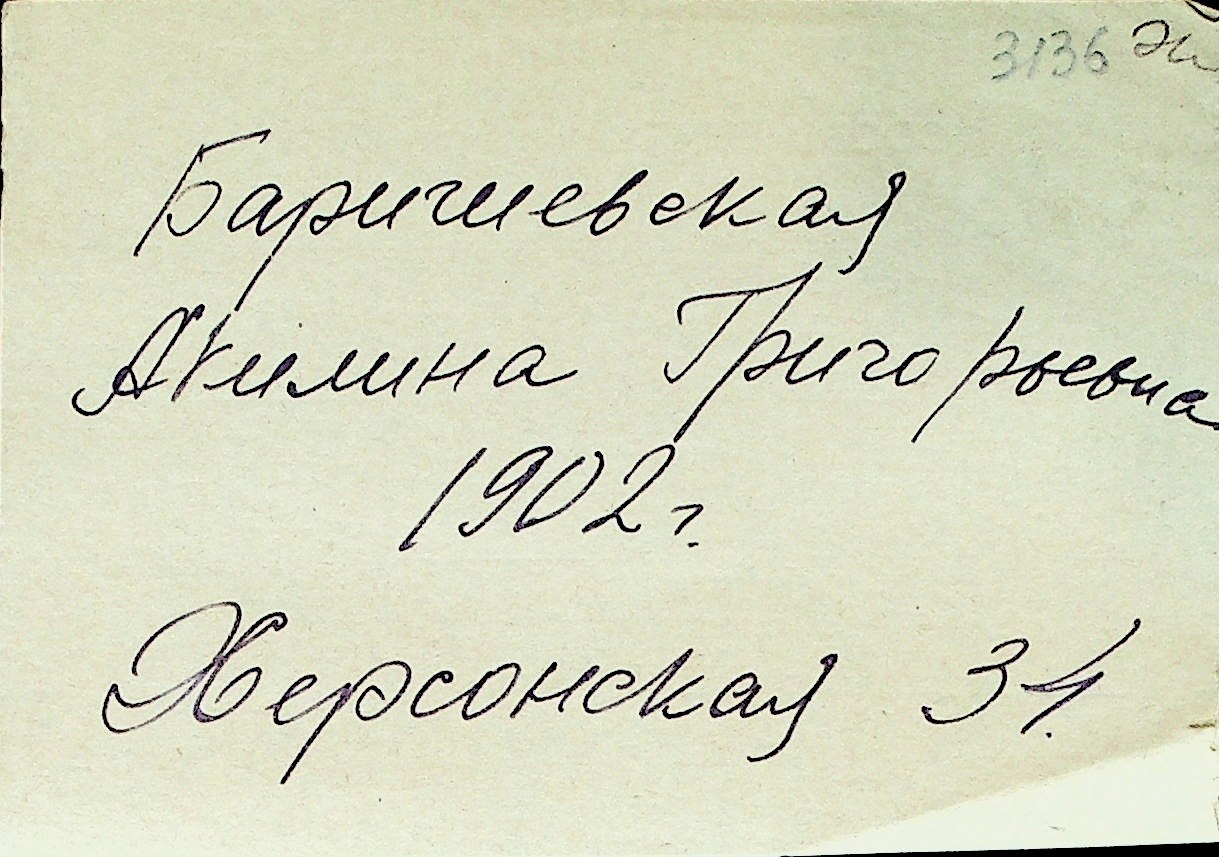 3136
Баришевская
Акилина Григорьевна
1902 г.
Херсонская 34.